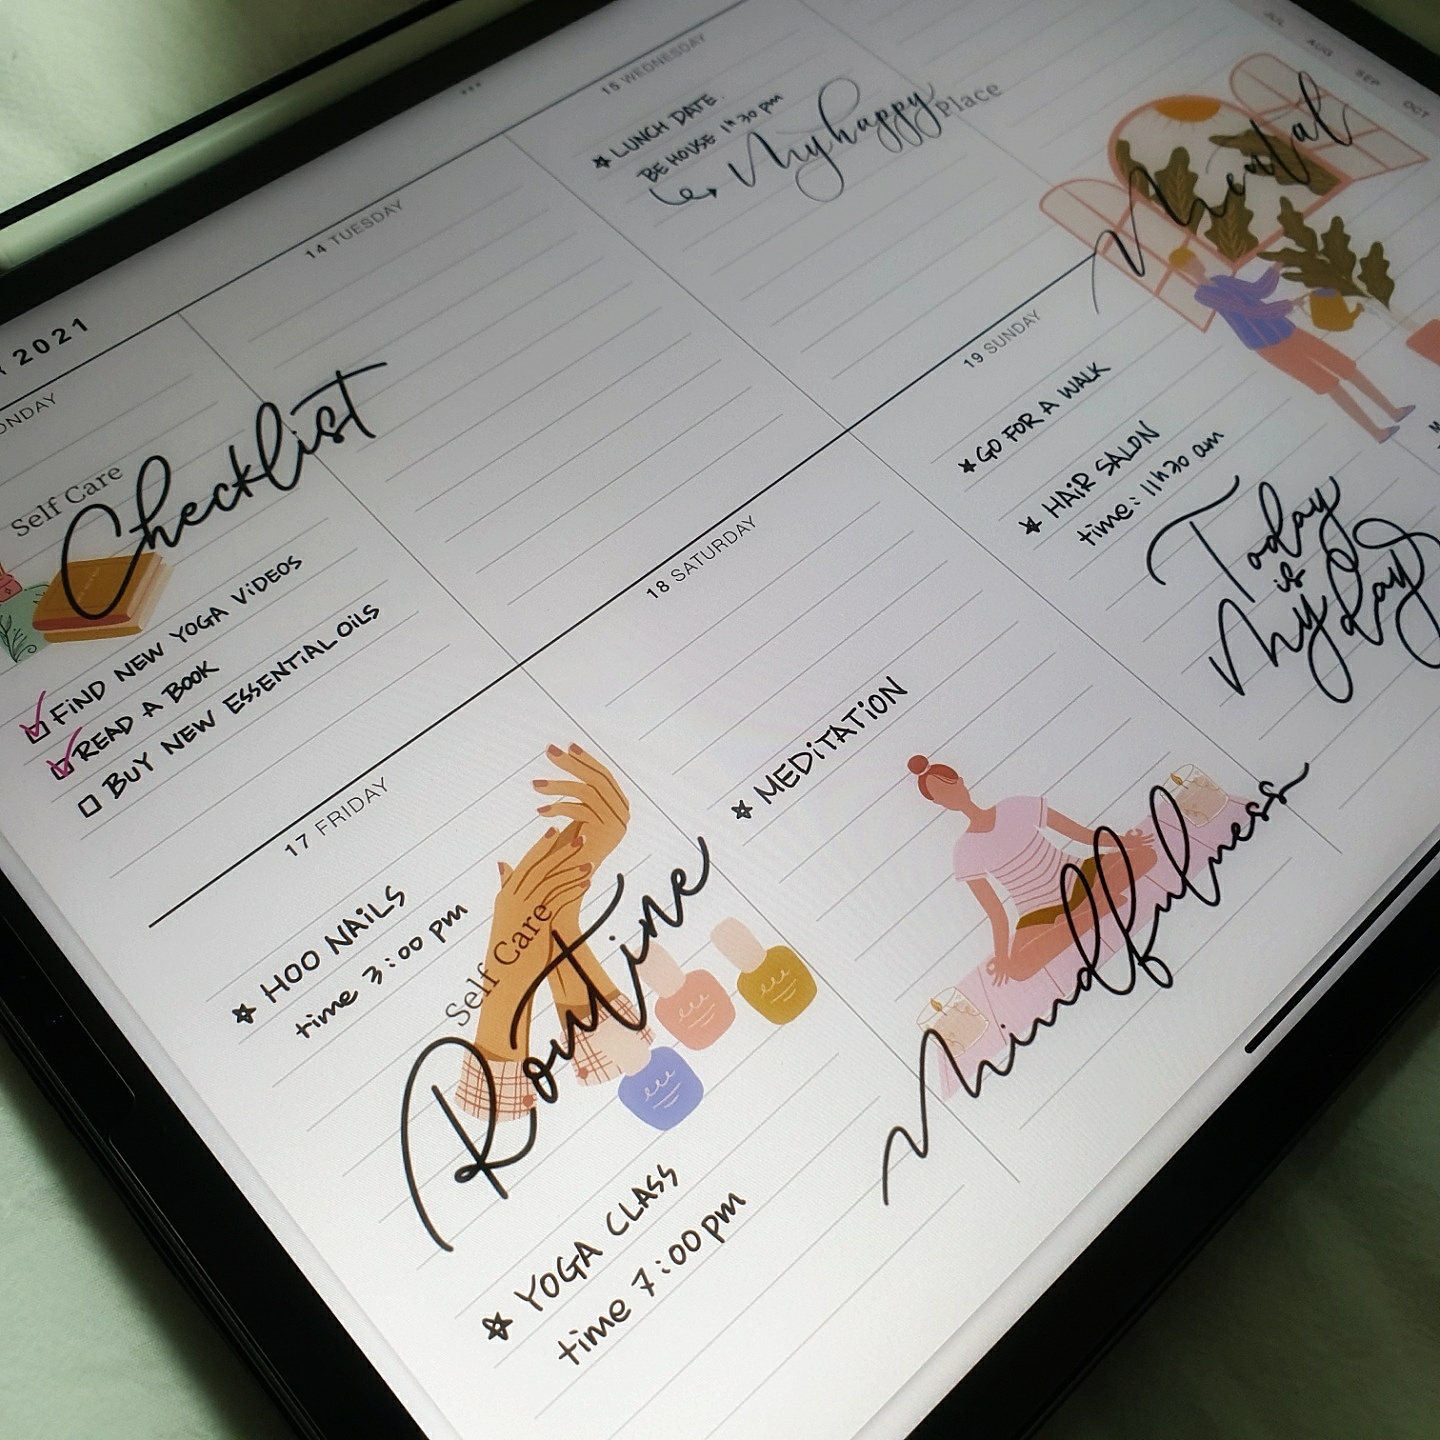 2021
14 TUESDAY
15 WEDNESDAY
☆ LUNCH DATE
BE HOUSE 1h30 pm
My happy Place
JUL
AUG
SEP
OCT
Self Care
Checklist
FiND NEW YOGA ViDEOS
READ A BOOK
BUY NEW ESSENTiAL OiLS
17 FRIDAY
☆ HOO NAiLS
time 3:00 pm
Self Care
Routine
☆ YOGA CLASS
time 7:00 pm
18 SATURDAY
☆ MEDiTATiON
Mindfulness
19 SUNDAY
☆ GO FOR A WALK
☆ HAiR SALON
time: 11h30 am
Today
is
My day
Mental